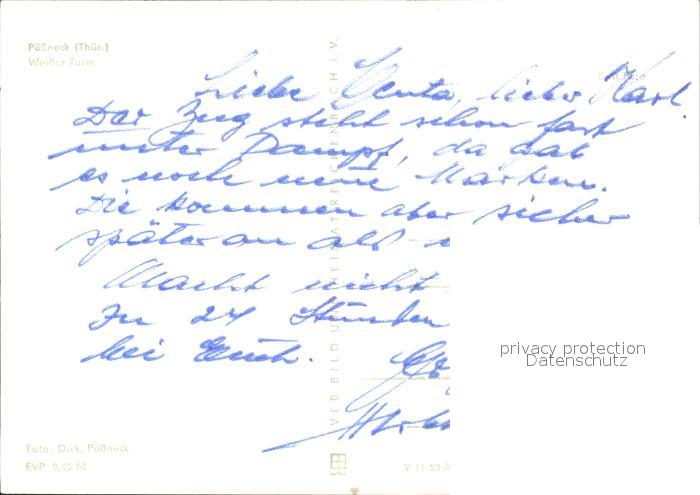 Pößneck (Thür.)
Weißer Turm
Echt Foto
Liebe Venta, lieber Karl.
Der Zug steht schon fast
unter Dampf, da gab
es noch neue Marken.
Die kommen aber sicher
später an als
Macht nicht
In 24 Stunden
bei Euch.
VEB BILD UND HEIMAT REICHENBACH I. V.
privacy protection
Datenschutz
Foto: Dick, Pößneck
EVP 0,25 M
V 11 50 A